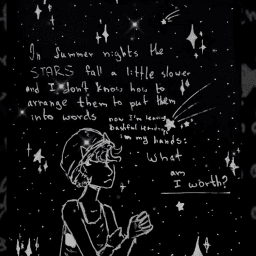 In Summer nights the
STARS fall a little slower
and I don't know how to
arrange them to put them
into words
now I'm leaving
bashful
in my hands:
What
am
I worth?